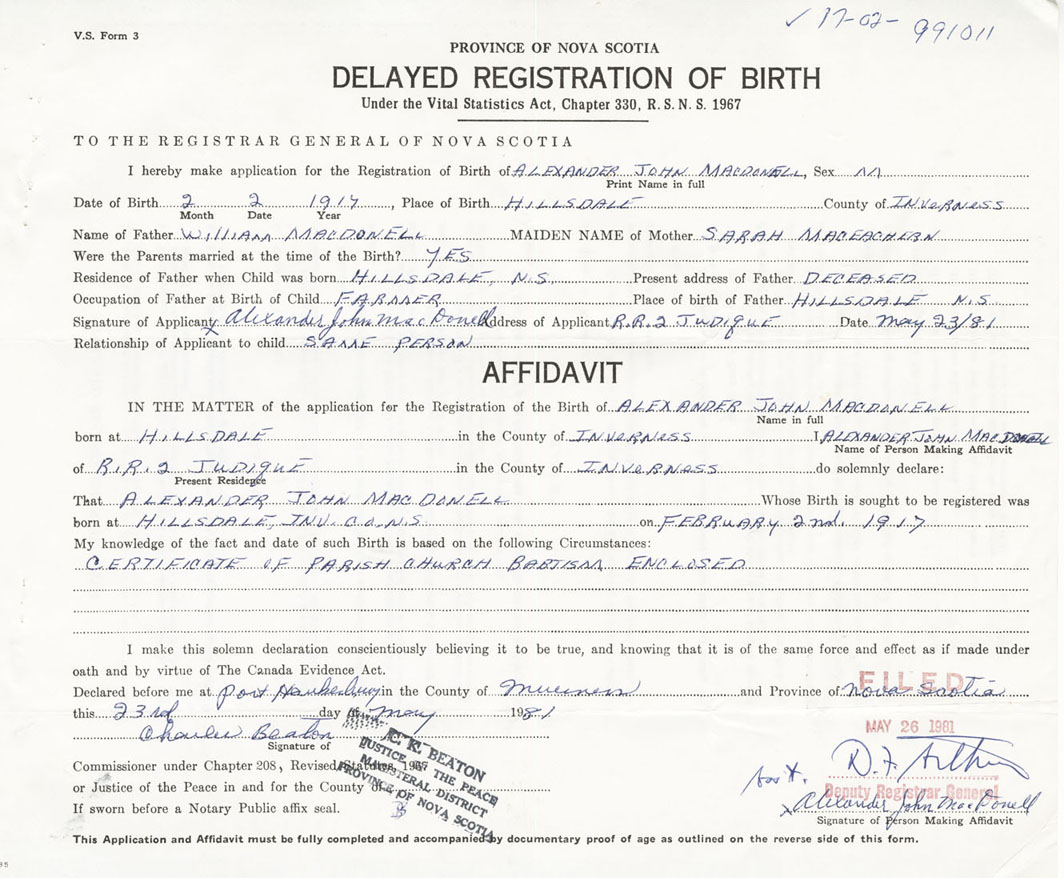 V.S. Form 3
✓ 17-02- 991011
PROVINCE OF NOVA SCOTIA
DELAYED REGISTRATION OF BIRTH
Under the Vital Statistics Act, Chapter 330, R. S. N. S. 1967
TO THE REGISTRAR GENERAL OF NOVA SCOTIA
I hereby make application for the Registration of Birth of ALEXANDER JOHN MACDONELL, Sex M
Print Name in full
Date of Birth 2 2 1917, Place of Birth HILLSDALE County of INVERNESS
Month Date Year
Name of Father WILLIAM MACDONELL MAIDEN NAME of Mother SARAH MACEACHERN
Were the Parents married at the time of the Birth? YES
Residence of Father when Child was born HILLSDALE, N.S. Present address of Father DECEASED
Occupation of Father at Birth of Child FARMER Place of birth of Father HILLSDALE N.S
Signature of Applicant x Alexander John MacDonell ddress of Applicant R.R.2 JUDIQUE Date May 23/81
Relationship of Applicant to child SAME PERSON
AFFIDAVIT
IN THE MATTER of the application for the Registration of the Birth of ALEXANDER JOHN MACDONELL
Name in full
born at HILLSDALE in the County of INVERNESS I ALEXANDER JOHN MACDONELL
Name of Person Making Affidavit
of R.R.2 JUDIQUE in the County of INVERNESS do solemnly declare:
Present Residence
That ALEXANDER JOHN MACDONELL Whose Birth is sought to be registered was
born at HILLSDALE, INV. CO. N.S. on FEBRUARY 2nd. 1917
My knowledge of the fact and date of such Birth is based on the following Circumstances:
CERTIFICATE OF PARISH CHURCH BABTISM ENCLOSED
I make this solemn declaration conscientiously believing it to be true, and knowing that it is of the same force and effect as if made under
oath and by virtue of The Canada Evidence Act.
Declared before me at Port Hawkesbury in the County of Inverness and Province of Nova Scotia
FILED
this 23rd day of May 1981
MAY 26 1981
Charles Beaton
Signature of
C. K. BEATON
JUSTICE OF THE PEACE
MAGISTERAL DISTRICT
PROVINCE OF NOVA SCOTIA
Commissioner under Chapter 208, Revised Statutes, 1967
or Justice of the Peace in and for the County of
If sworn before a Notary Public affix seal.
D.F.
Deputy Registrar General
x Alexander John MacDonell
Signature of Person Making Affidavit
This Application and Affidavit must be fully completed and accompanied by documentary proof of age as outlined on the reverse side of this form.